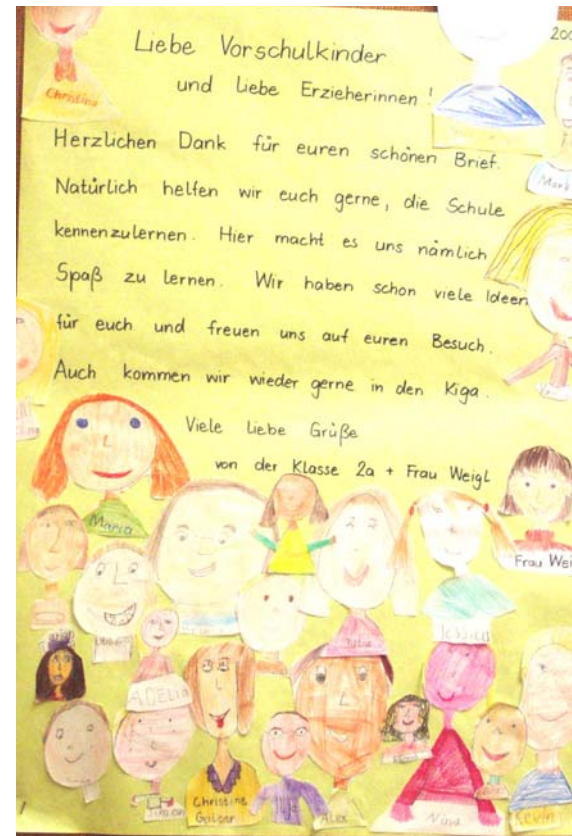 Liebe Vorschulkinder
und liebe Erzieherinnen!
Herzlichen Dank für euren schönen Brief.
Natürlich helfen wir euch gerne, die Schule
kennenzulernen. Hier macht es uns nämlich
Spaß zu lernen. Wir haben schon viele Ideen
für euch und freuen uns auf euren Besuch.
Auch kommen wir wieder gerne in den Kiga.
Viele liebe Grüße
von der Klasse 2a + Frau Weigl
200
Christina
Mark
Maria
Frau Wei
Jessica
ADELIA
Simon
Christine
Galser
Alex
Nina
Kevin